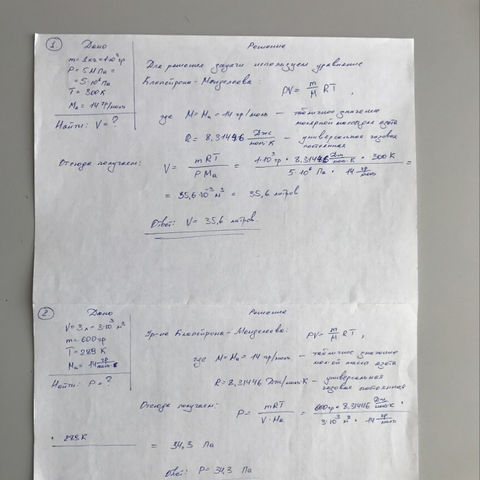 1. Дано
Решение
m = 1кг = 1·10³ гр
P = 5 МПа =
= 5·10⁶ Па
T = 300К
Mа = 14 гр/моль
Найти: V = ?
Для решения задачи используем уравнение
Клапейрона-Менделеева:
PV = m/M RT,
где M = Mа = 14 гр/моль — табличное значение
молярной массы азота
R = 8,31446 Дж/моль·К — универсальная газовая
постоянная
Отсюда получаем:
V = mRT / P Mа = 1·10³гр · 8,31446 Дж/моль·К · 300К / 5·10⁶ Па · 14 гр/моль =
= 35,6·10⁻³ м³ = 35,6 литров
Ответ: V = 35,6 литров.
2. Дано
Решение
V = 3л = 3·10⁻³ м³
m = 600гр
T = 289 К
Mа = 14 гр/моль
Найти: P = ?
Ур-ие Клапейрона-Менделеева: PV = m/M RT,
где M = Mа = 14 гр/моль — табличное значение
масса азота
R = 8,31446 Дж/моль·К — универсальная
газовая постоянная
Отсюда получаем:
P = mRT / V·Mа = 600гр · 8,31446 Дж/моль·К / 3·10⁻³ м³ · 14 гр/моль
· 289К = 34,3 Па
Ответ: P = 34,3 Па